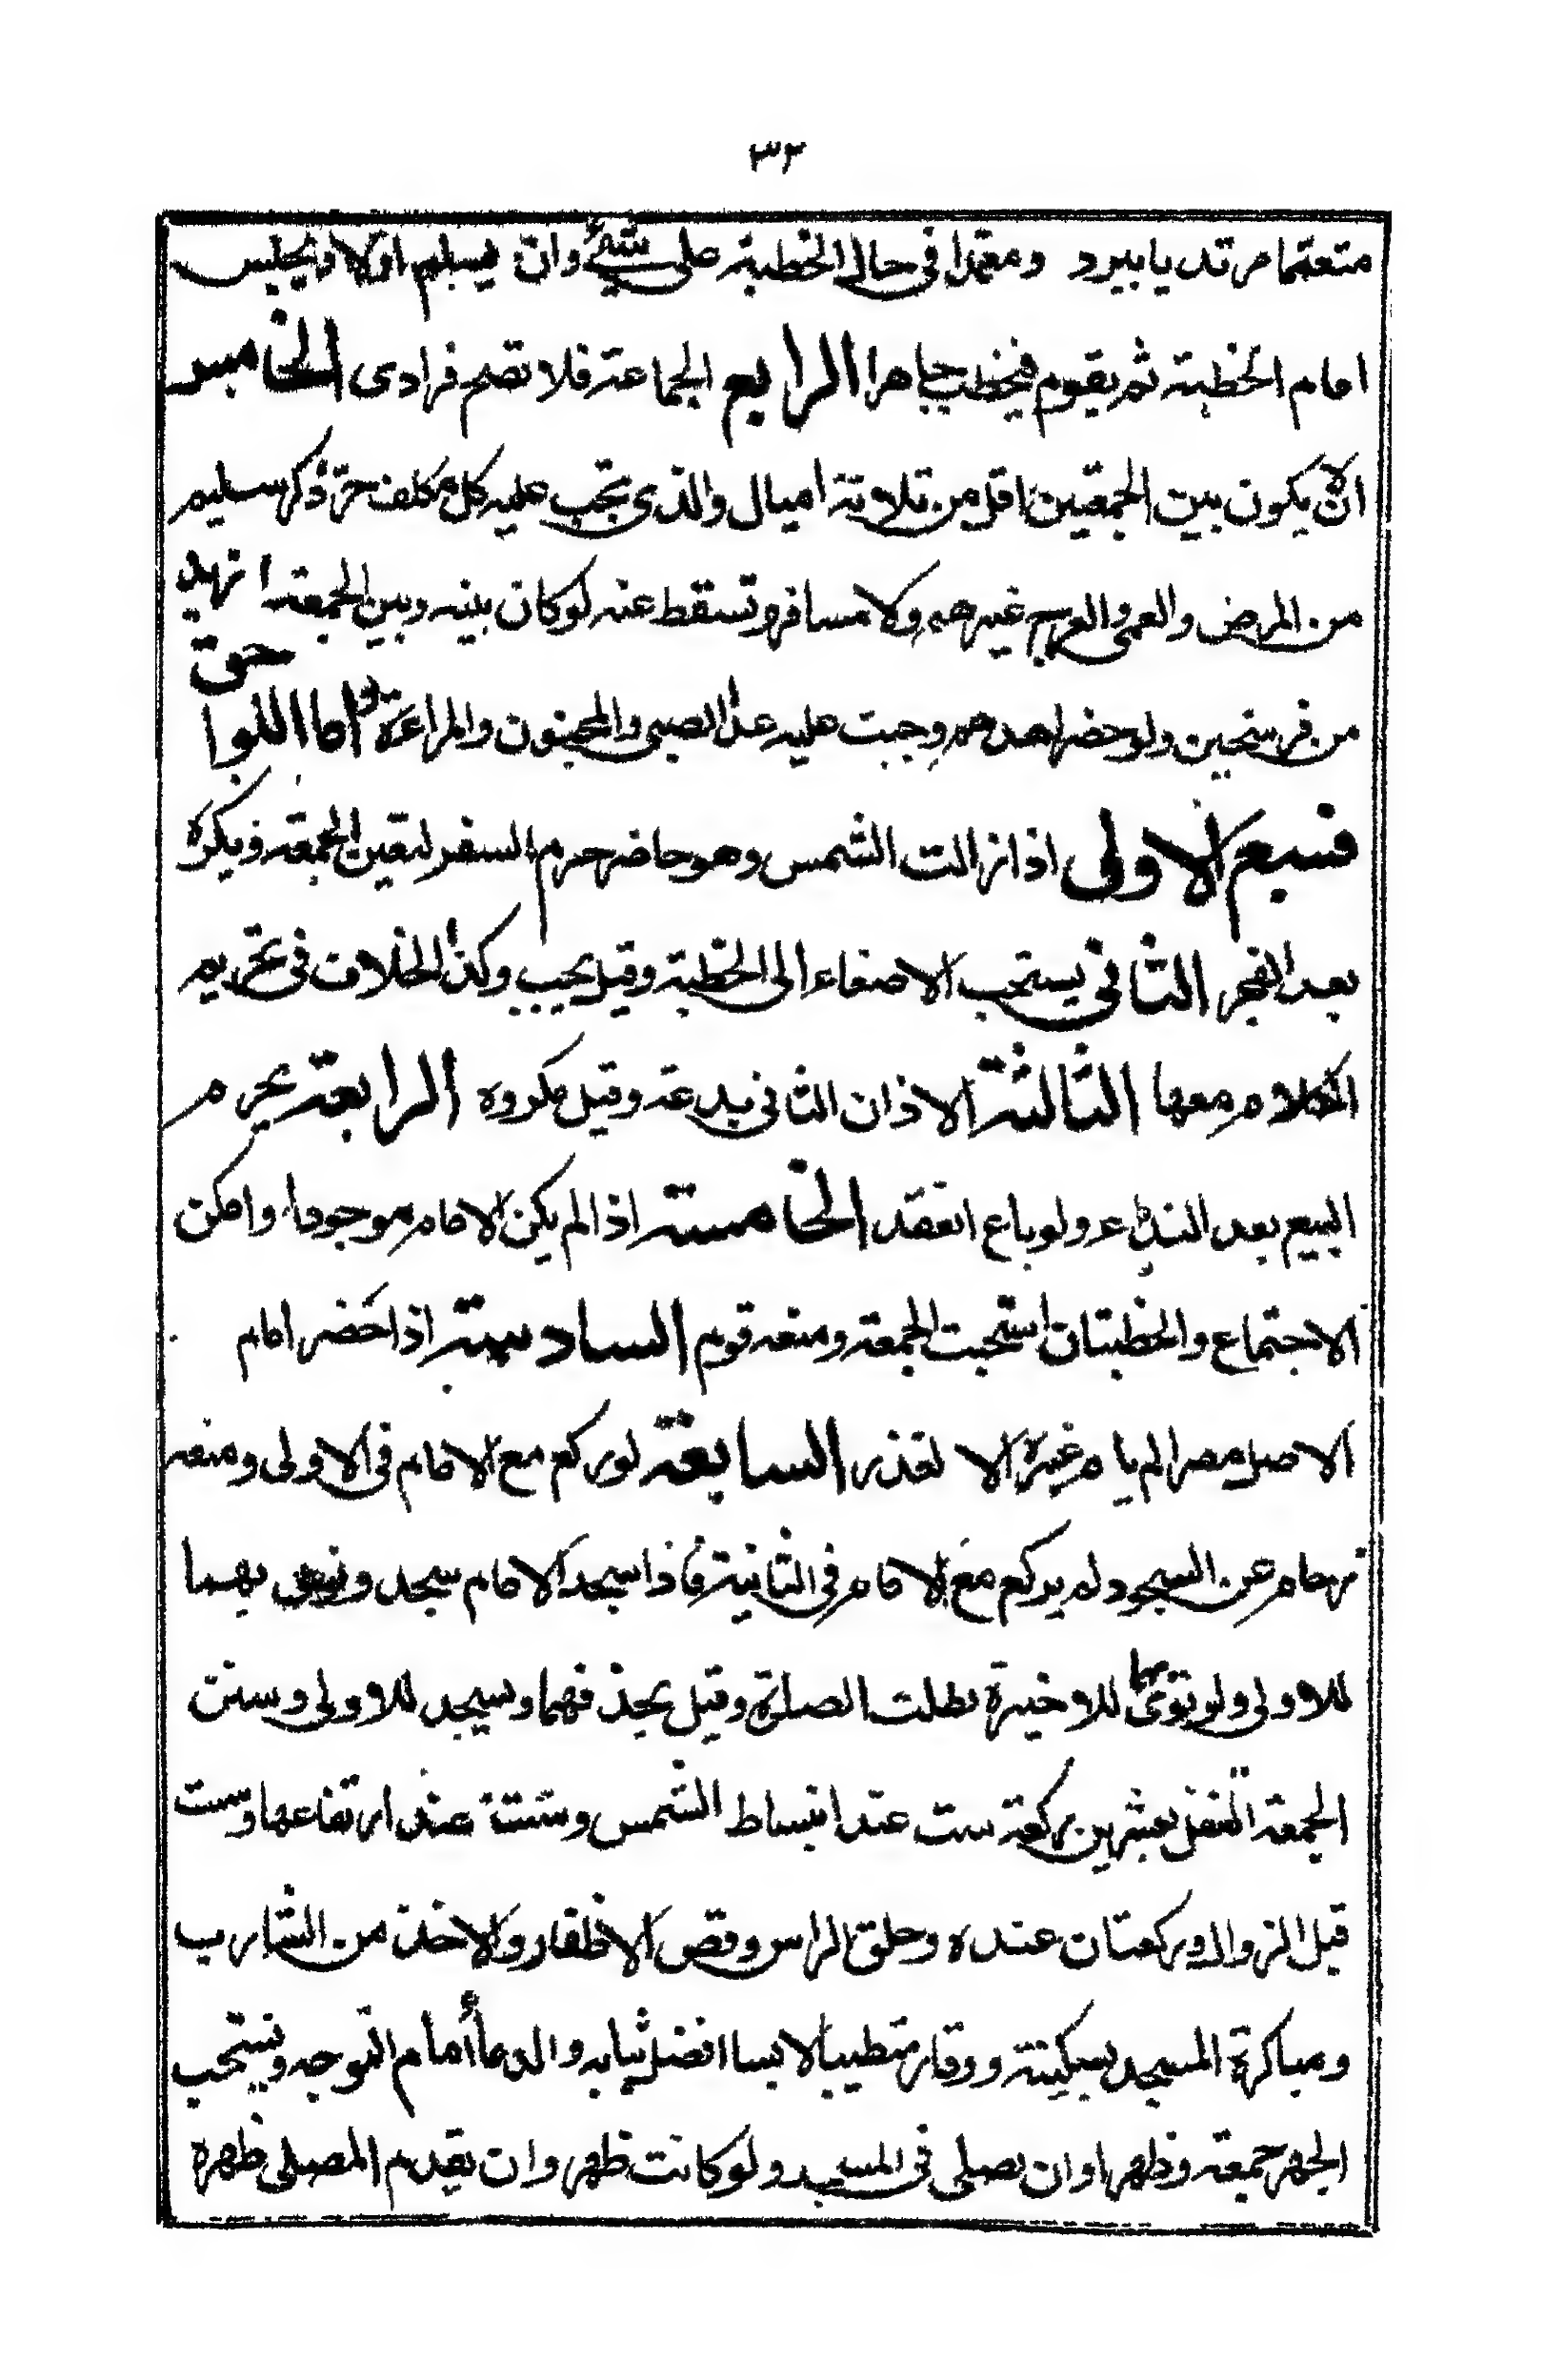 ٣٢
متعتما مرتديا ببرد ومعتمدا في حال الخطبة على شيئ وان يسلم اولا ويجلس
امام الخطبة ثم يقوم فيخطب جاهرا الرابع الجماعة فلا تصح فرادى الخامس
ان لا يكون بين الجمعتين اقل من ثلاثة اميال والذي تجب عليه كل مكلف حر ذكر سليم
من المرض والعمى والعرج غير هم ولا مسافر وتسقط عنه لو كان بينه وبين الجمعة ازيد
من فرسخين ولو حضر احدهم وجبت عليه عدا الصبي والمجنون والمراءة واما اللواحق
فسبع الاولى اذا زالت الشمس وهو حاضر حرم السفر لتعين الجمعة ويكره
بعد الفجر الثاني يستحب الاصغاء الى الخطبة وقيل يجب وكذا الخلاف في تحريم
الكلام معها الثالثة الاذان الثاني بدعة وقيل مكروه الرابعة يحرم
البيع بعد النداء ولو باع انعقد الخامسة اذا لم يكن الامام موجودا وامكن
الاجتماع والخطبتان استحبت الجمعة ومنعه قوم السادسة اذا حضر امام
الاصل مصرا لم يام غيره الا لعذر السابعة لو ركع مع الامام في الاولى ومنعه
زحام عن السجود لم يركع مع الامام في الثانية فاذا سجد الامام سجد ونوى بهما
للاولى ولو نوى بهما للاخيرة بطلت الصلوة وقيل يحذفهما ويسجد للاولى وسنن
الجمعة التنفل بعشرين ركعة ست عند انبساط الشمس وستة عند ارتفاعها وست
قبل الزوال وركعتان عنده وحلق الراس وقص الاظفار والاخذ من الشارب
ومباكرة المسجد بسكينة ووقار متطيبا لابسا افضل ثيابه والدعاأمام التوجه ويستحب
الجهر جمعة وظهرا وان يصلي في المسجد ولو كانت ظهر وان يقدم المصلي ظهره